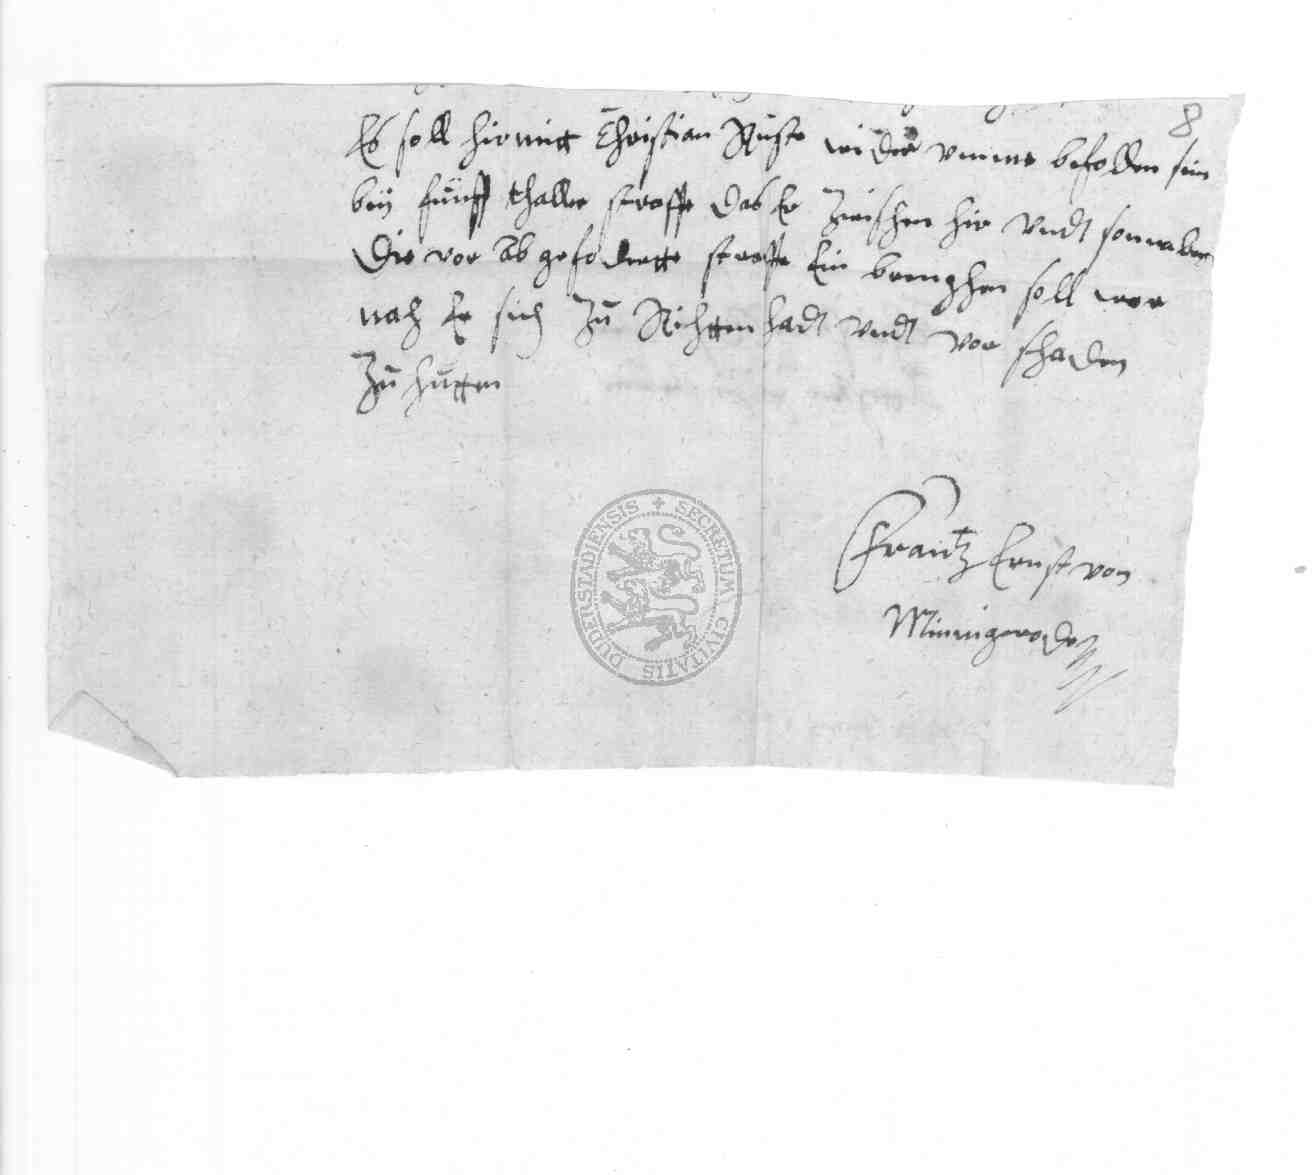 8
Es soll hirmitt Christian Ruste wider umme befollen sein
bey fünff thaller straffe das Er zwischen hir undt sonnaben
die vor abgeforderte straffe Ein brenghen soll wor
nach Er sich zu Richtten hadt undt vor schaden
zu hutten
Frantz Ernst von
Minnigerode
SECRETUM CIVITATIS DUDERSTADIENSIS